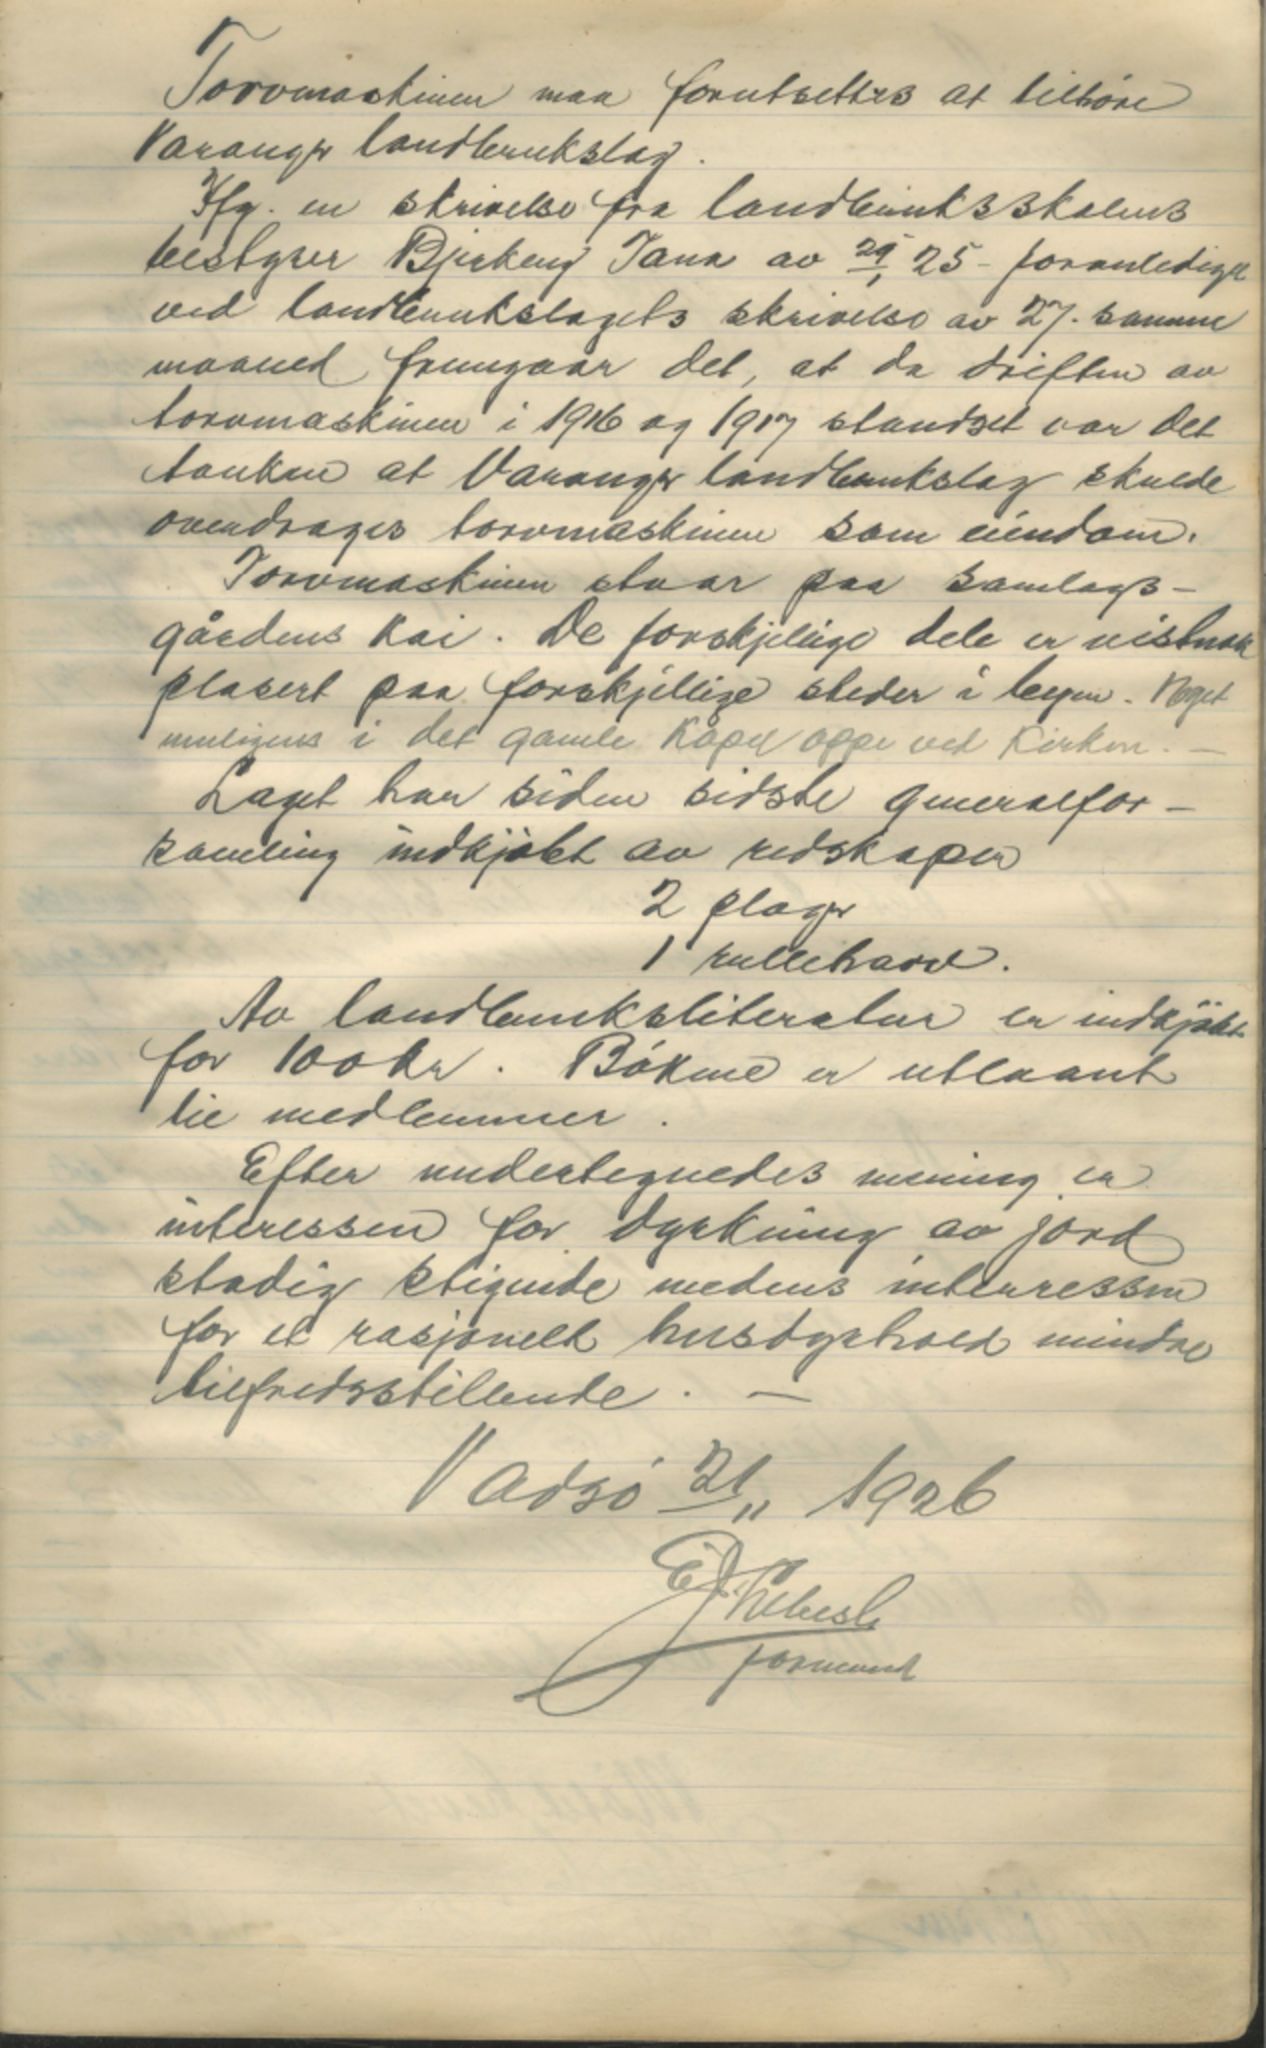 Torvmaskinen maa forutsettes at tilhøre
Varanger landbrukslag.
Ifg. en skrivelse fra landbruksskolens
bestyrer Bjerkeng Tana av 29/1 25 - foranlediget
ved landbrukslagets skrivelse av 27. samme
maaned fremgaar det, at da driften av
torvmaskinen i 1916 og 1917 standset var det
tanken at Varanger landbrukslag skulde
overdrages torvmaskinen som eiendom.
Torvmaskinen staar paa samlags-
gårdens kai. De forskjellige dele er vistnok
plasert paa forskjellige steder i byen. Noget
muligens i det gamle kapel oppe ved Kirken. -
Laget har siden sidste generalfor-
samling indkjøbt av redskaper
2 ploger
1 rulleharv.
Av landbruksliteratur er indkjöbt
for 100 kr. Bøkene er utlaant
til medlemmer.
Efter undertegnedes mening er
interessen for dyrkning av jord
stadig stigende medens interressen
for et rasjonelt husdyrhold mindre
tilfredsstillende. -
Vadsø 21/11 1926
formand